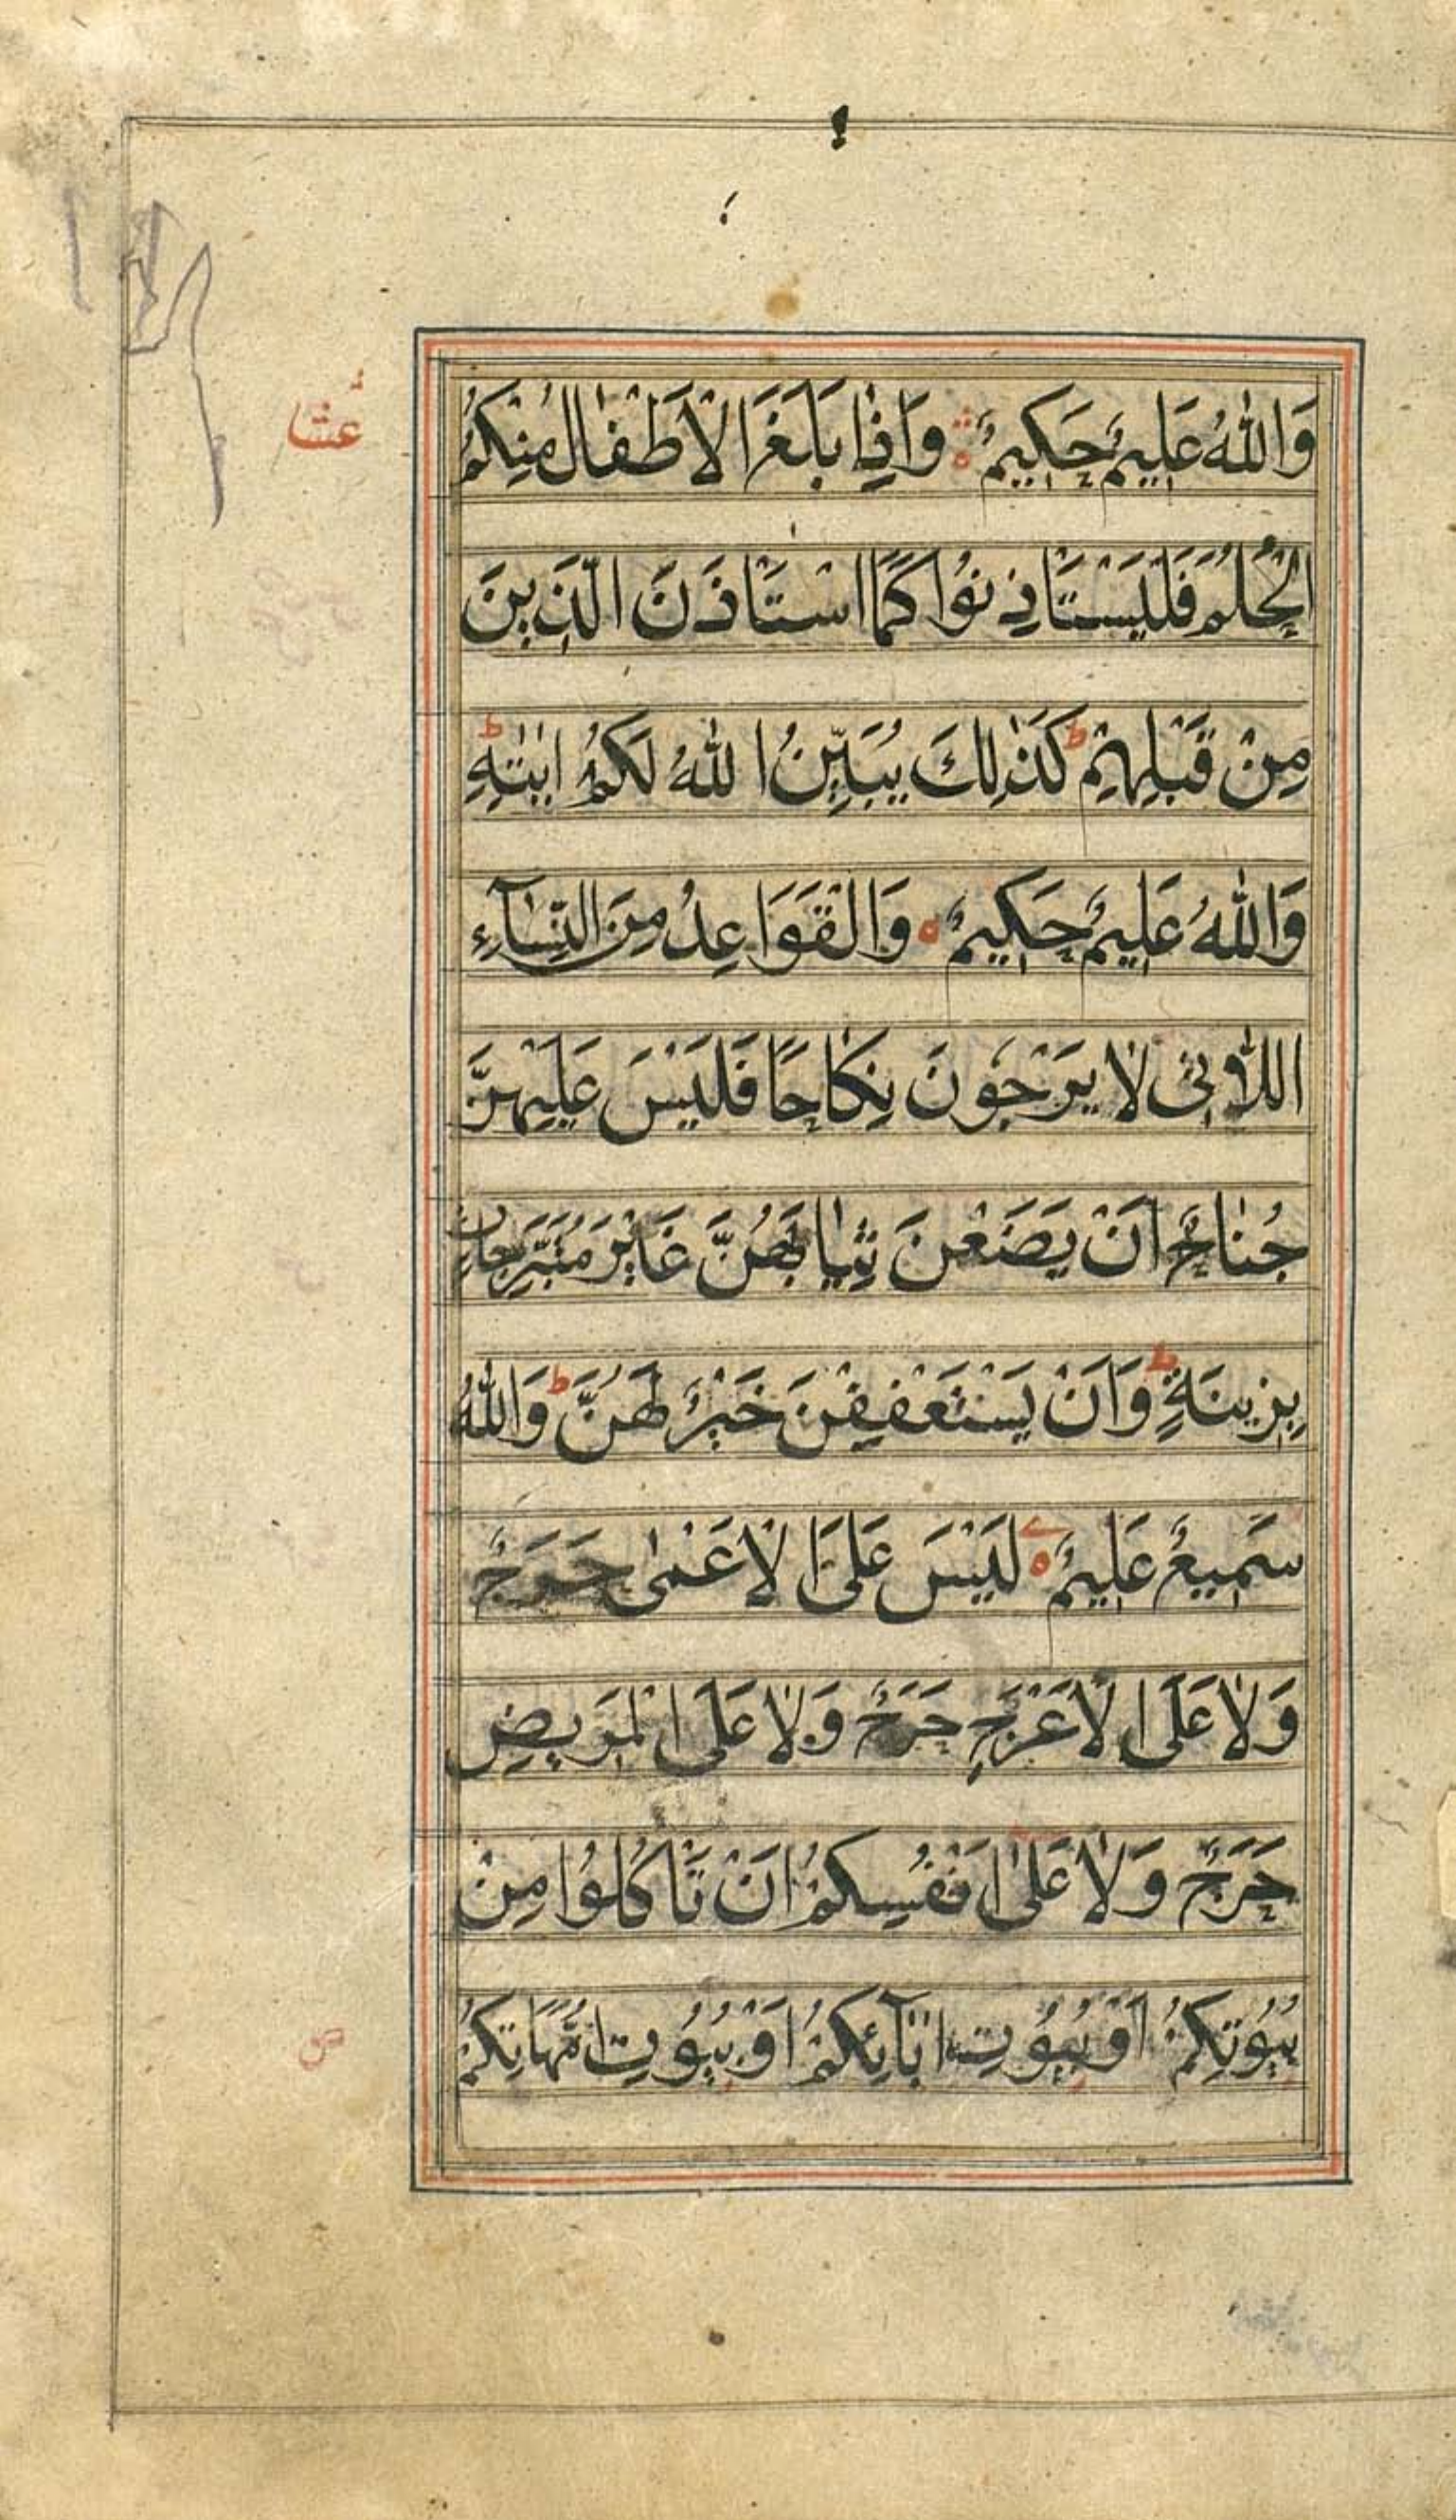 وَاللّٰهُ عَلِيمٌ حَكِيمٌ ۝ وَاِذٰا بَلَغَ الْاَطْفٰالُ مِنْكُمُ
عشا
الْحُلُمَ فَلْيَسْتَاْذِنُوا كَمَا اسْتَاْذَنَ الَّذِينَ
مِنْ قَبْلِهِمْ ط كَذٰلِكَ يُبَيِّنُ اللّٰهُ لَكُمْ اٰيٰتِهِ ط
وَاللّٰهُ عَلِيمٌ حَكِيمٌ ۝ وَالْقَوَاعِدُ مِنَ النِّسٰآءِ
اللّٰاتِى لٰا يَرْجُونَ نِكٰاحًا فَلَيْسَ عَلَيْهِنَّ
جُنٰاحٌ اَنْ يَضَعْنَ ثِيٰابَهُنَّ غَيْرَ مُتَبَرِّجٰاتٍ
بِزِينَةٍ ط وَاَنْ يَسْتَعْفِفْنَ خَيْرٌ لَهُنَّ ط وَاللّٰهُ
سَمِيعٌ عَلِيمٌ ۝ لَيْسَ عَلَى الْاَعْمٰى حَرَجٌ
وَلٰا عَلَى الْاَعْرَجِ حَرَجٌ وَلٰا عَلَى الْمَرِيضِ
حَرَجٌ وَلٰا عَلٰى اَنْفُسِكُمْ اَنْ تَاْكُلُوا مِنْ
بُيُوتِكُمْ اَوْ بُيُوتِ اٰبٰآئِكُمْ اَوْ بُيُوتِ اُمَّهٰاتِكُمْ
ص